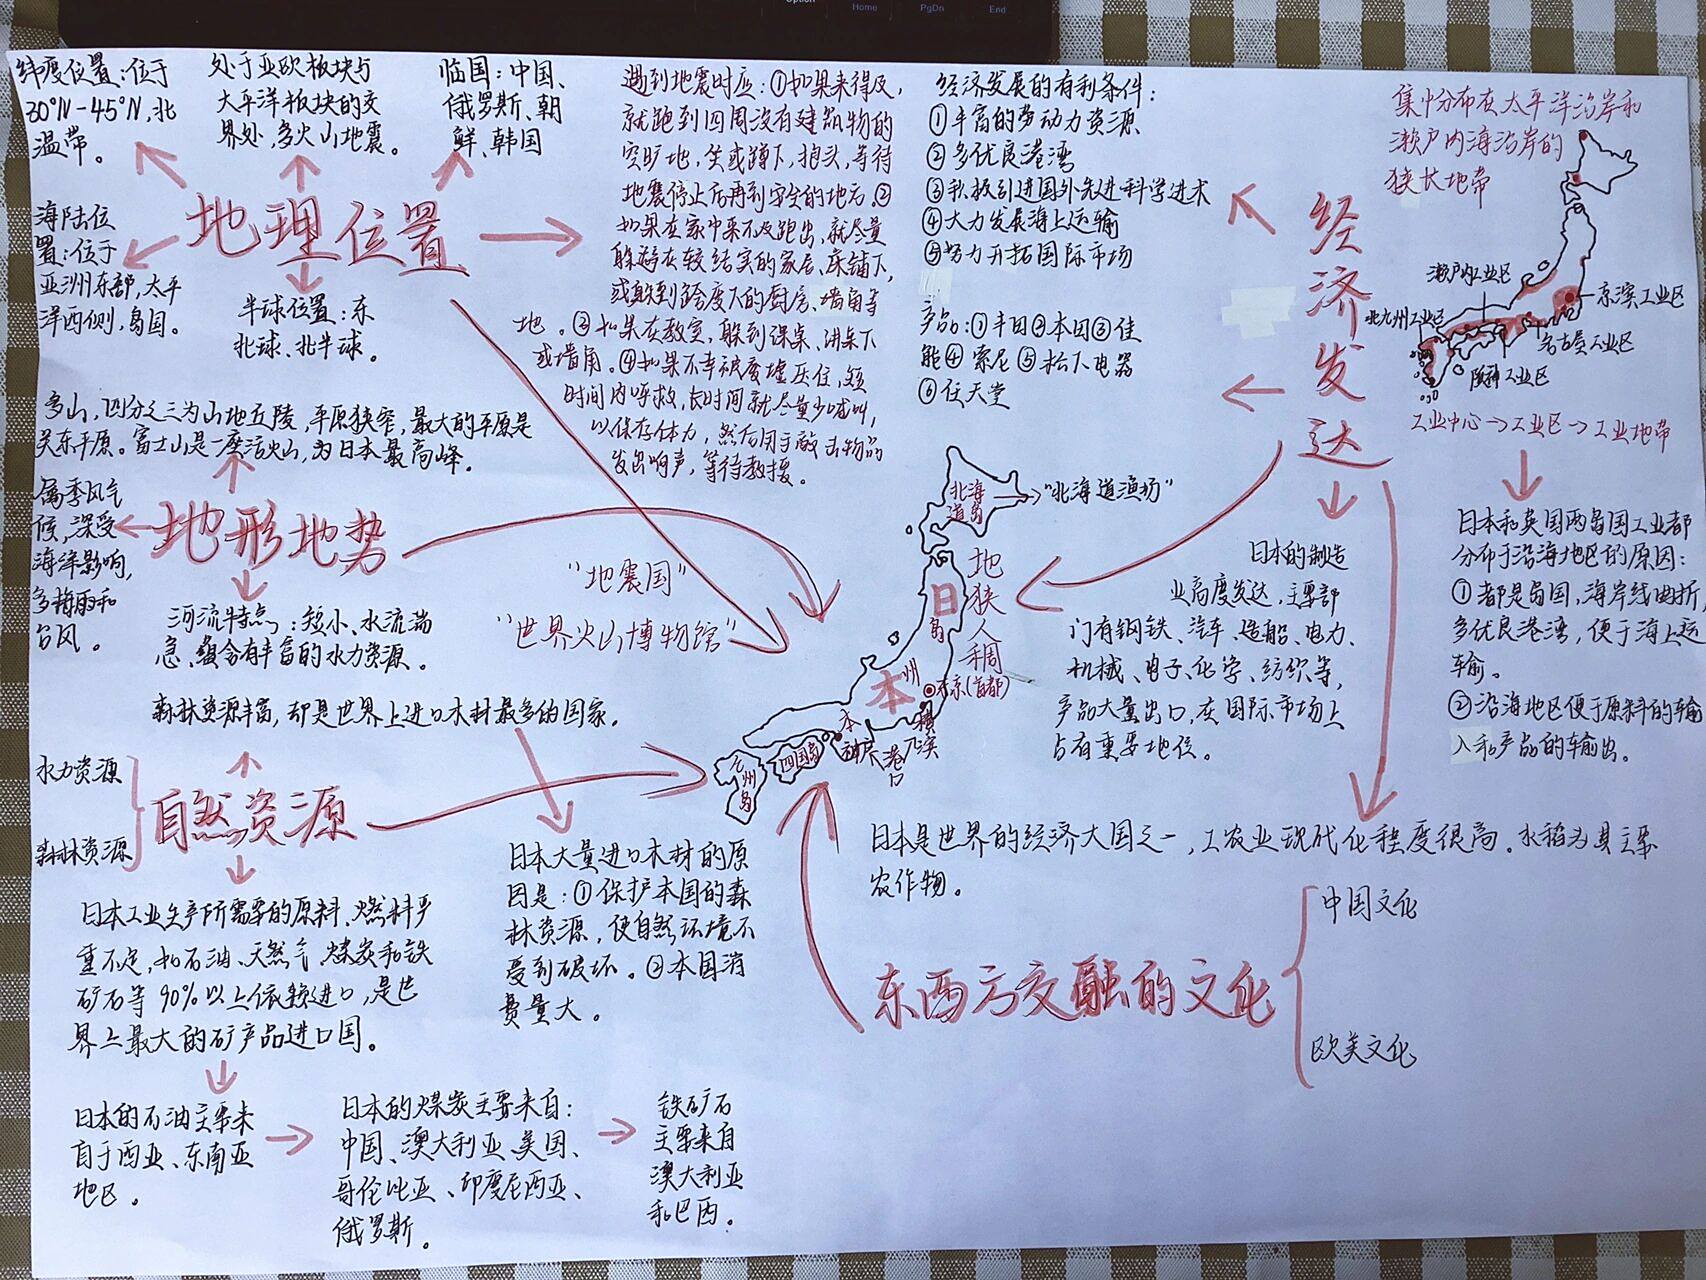 Option
Home
PgDn
End
纬度位置:位于
30°N-45°N,北
温带。
处于亚欧板块与
太平洋板块的交
界处,多火山地震。
临国:中国、
俄罗斯、朝
鲜、韩国
海陆位
置:位于
亚洲东部,太平
洋西侧,岛国。
地理位置
半球位置:东
北球、北半球。
遇到地震时应:①如果来得及,
就跑到四周没有建筑物的
空旷地,坐或蹲下,抱头,等待
地震停止后再到安全的地方。②
如果在家中来不及跑出,就尽量
躲避在较结实的家居、床铺下,
或躲到跨度下的厨房、墙角等
地。③如果在教室,躲到课桌、讲桌下
或墙角。④如果不幸被废墟压住,短
时间内呼救,长时间就尽量少喊叫,
以保存体力,然后用手敲击物品
发出响声,等待救援。
经济发展的有利条件:
①丰富的劳动力资源
②多优良港湾
③积极引进国外先进科学进术
④大力发展海上运输
⑤努力开拓国际市场
产品:①丰田②本田③佳
能④索尼⑤松下电器
⑥任天堂
经济发达
集中分布在太平洋沿岸和
濑户内海沿岸的
狭长地带
濑户内工业区
京滨工业区
北九州工业区
名古屋工业区
阪神工业区
工业中心→工业区→工业地带
多山,四分之三为山地丘陵,平原狭窄,最大的平原是
关东平原。富士山是一座活火山,为日本最高峰。
属季风气
候,深受
海洋影响,
多梅雨和
台风。
地形地势
河流特点:短小、水流湍
急、蕴含有丰富的水力资源。
"地震国"
"世界火山博物馆"
北海
道岛
"北海道渔场"
日本
本州岛
地狭人稠
东京(首都)
横滨
神户
大港口
四国岛
九州岛
日本的制造
业高度发达,主要部
门有钢铁、汽车、造船、电力、
机械、电子、化学、纺织等,
产品大量出口,在国际市场上
占有重要地位。
日本和英国两岛国工业都
分布于沿海地区的原因:
①都是岛国,海岸线曲折,
多优良港湾,便于海上运
输。
②沿海地区便于原料的输
入和产品的输出。
森林资源丰富,却是世界上进口木材最多的国家。
水力资源
森林资源
自然资源
日本大量进口木材的原
因是:①保护本国的森
林资源,使自然环境不
受到破坏。②本国消
费量大。
日本工业生产所需要的原料、燃料严
重不足,如石油、天然气、煤炭和铁
矿石等90%以上依赖进口,是世
界上最大的矿产品进口国。
日本的石油主要来
自于西亚、东南亚
地区。
日本的煤炭主要来自:
中国、澳大利亚、美国、
哥伦比亚、印度尼西亚、
俄罗斯。
铁矿石
主要来自
澳大利亚
和巴西。
日本是世界的经济大国之一,工农业现代化程度很高。水稻为其主要
农作物。
东西方交融的文化
中国文化
欧美文化